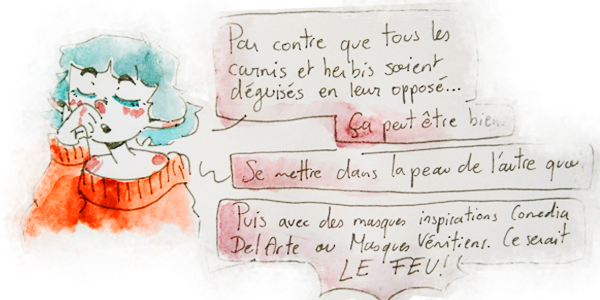 Par contre que tous les
carnis et herbis soient
déguisés en leur opposé...
Ça peut être bien.
Se mettre dans la peau de l'autre quoi.
Puis avec des masques inspirations Comedia
Del Arte ou Masques Vénitiens. Ce serait
LE FEU!